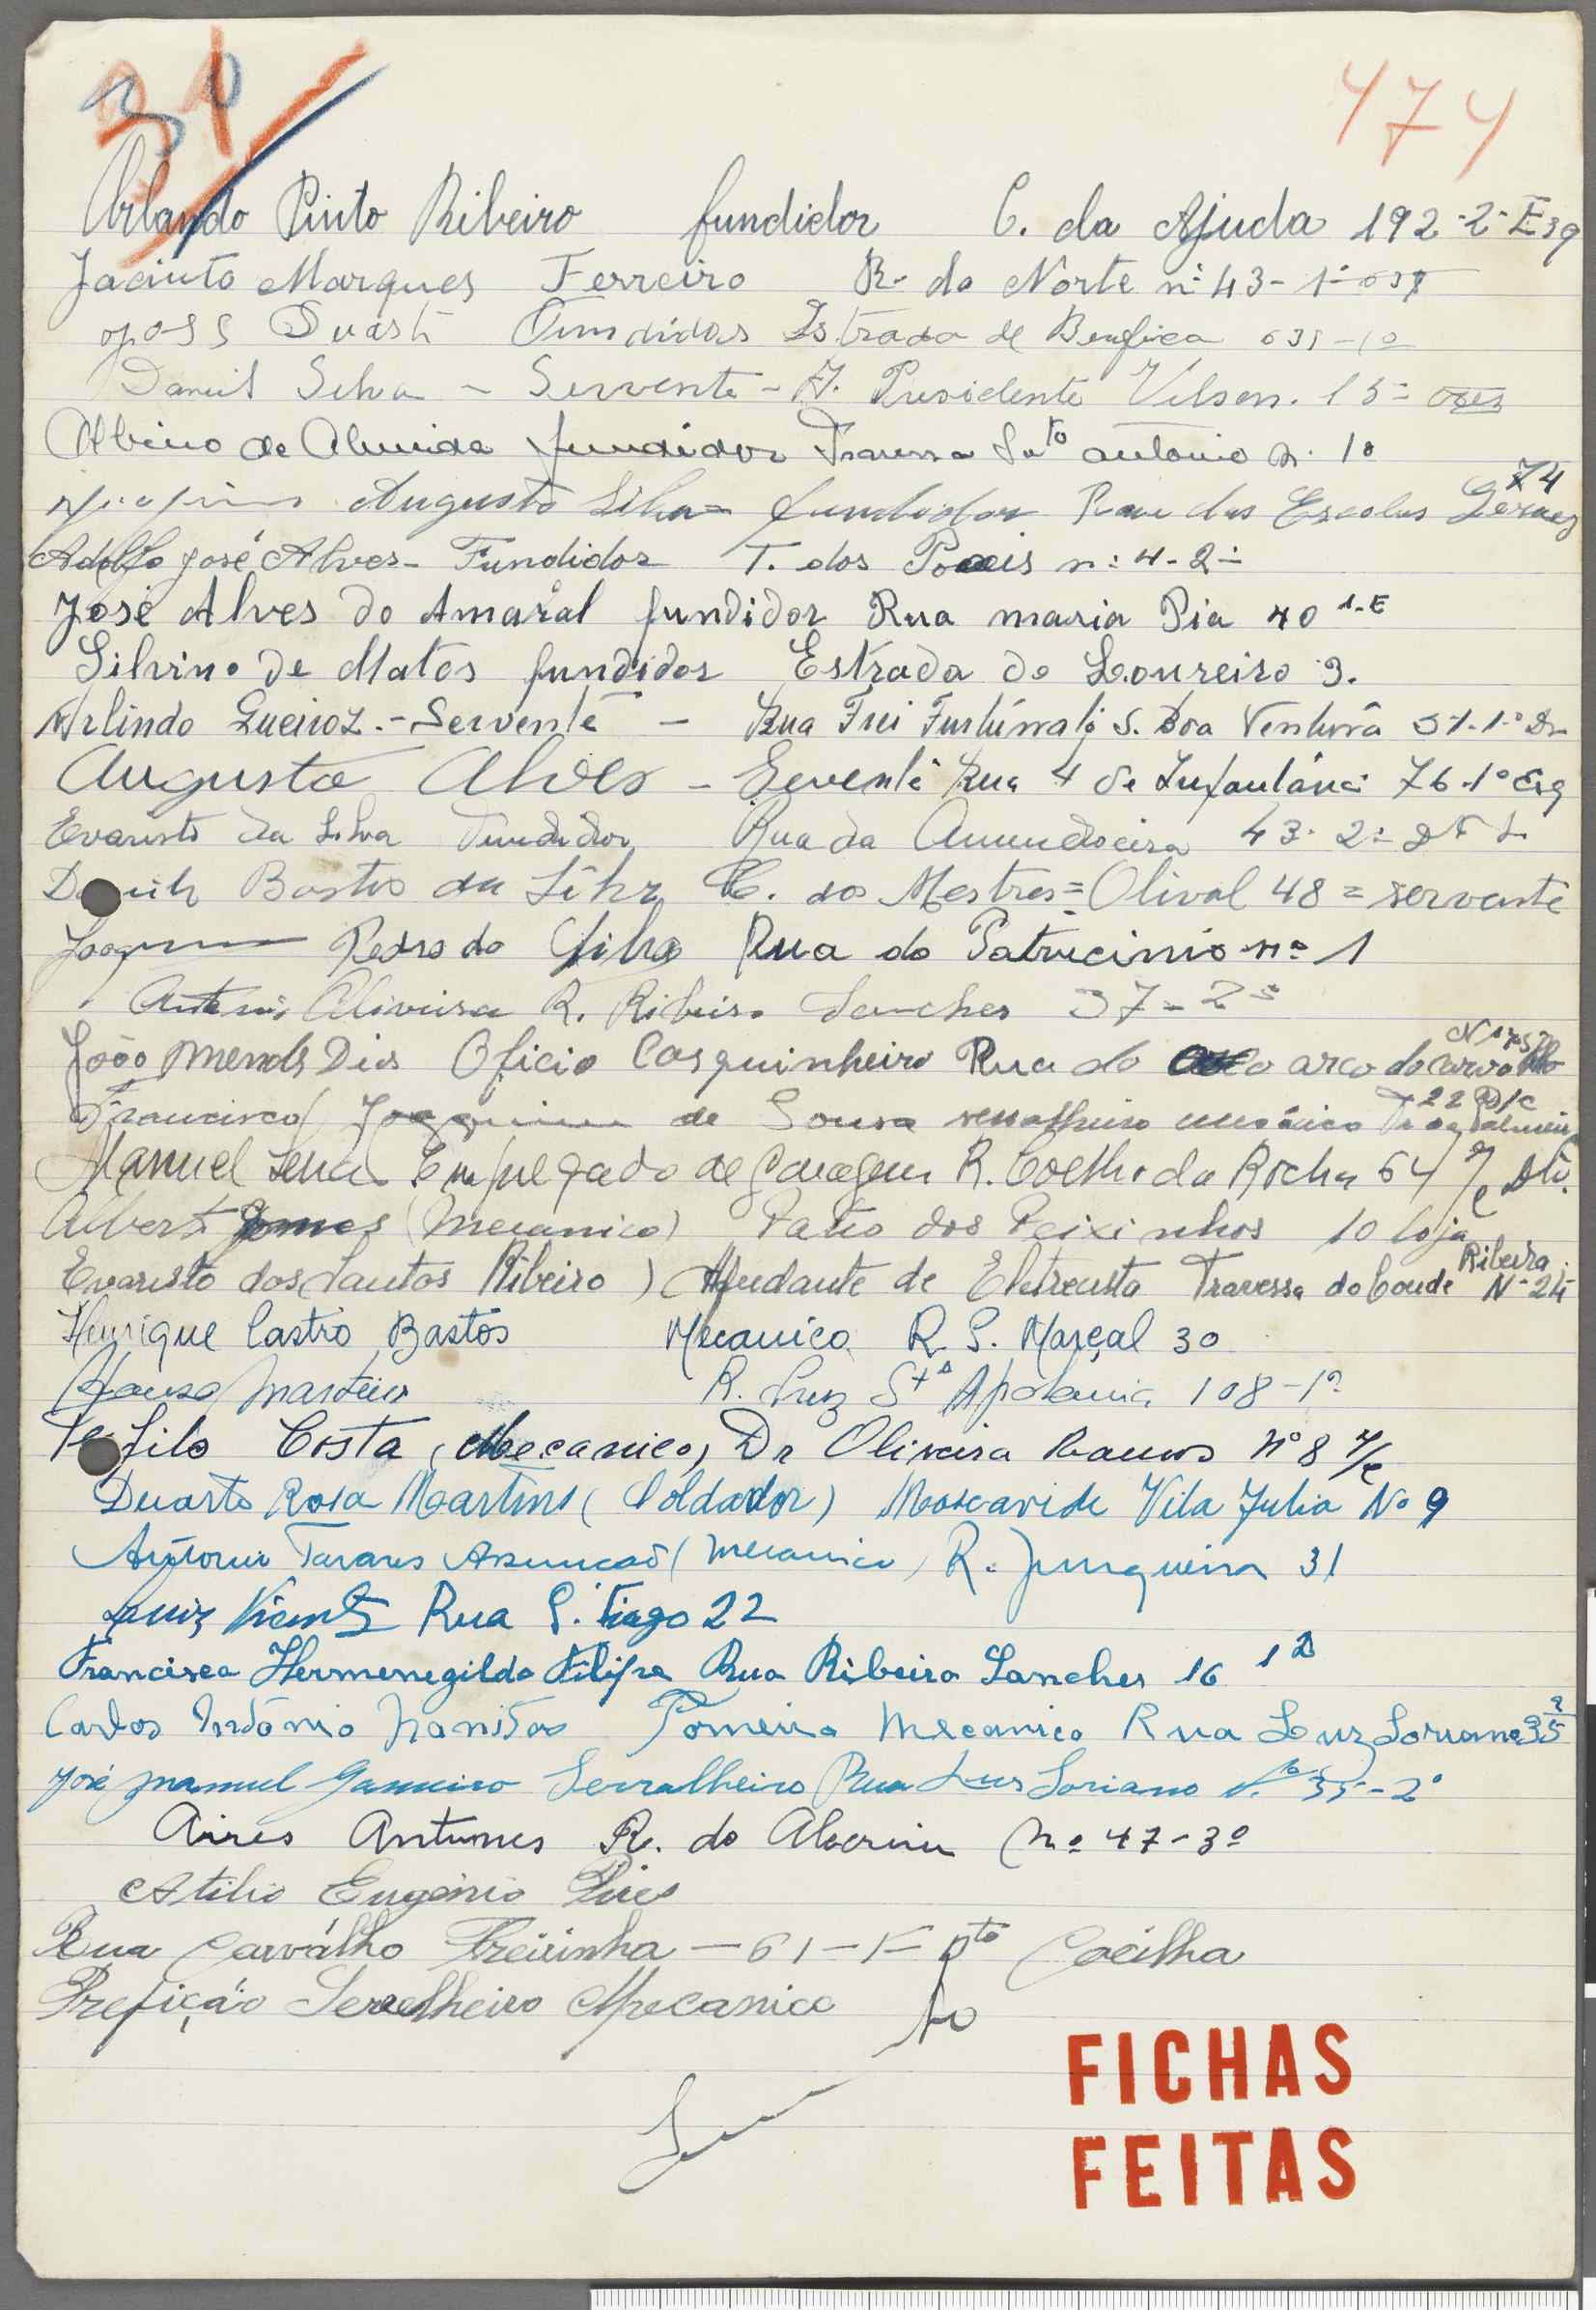 31
474
Orlando Pinto Ribeiro fundidor C. da Ajuda 192-2-Esq
Jacinto Marques Ferreiro R. do Norte nº 43-1º
Fundidor Estrada de Benfica 635-1º
Daniel Silva - Servente - A. Presidente Vilson. 15=
Albino de Almeida fundidor Travessa Sto antonio n. 10
Augusto Silva = fundidor Rua das Escolas Geraes 74
Adolfo José Alves - Fundidor T. dos Poiais n: 4-2º
José Alves do Amaral fundidor Rua maria Pia 40 1-E
Silvino de Matos fundidor Estrada do Loureiro 9.
Arlindo Queiroz. - Servente - Rua Frei S. Boa Ventura 51-1º Dr
Augusto Alves - Rua 4 de Infantária 76-1º Esq
Evaristo da Silva Fundidor Rua da Amendoeira 43-2º
Bastos da Silva C. dos Mestres = Olival 48 = servente
Joaquim Pedro da Silva Rua do Patrucinio nº 1
António Oliveira R. Ribeiro Sanches 37-2º
João Mendes Dias Oficio Casquinheiro Rua do arco do carvalhão
Francisco Joaquim de Sousa serralheiro mecânico 22 R/C
Manuel Sena Empregado de Garagem R. Coelho da Rocha 64 r/c Dto.
Alberto Gomes (Mecanico) Patio dos Peixinhos 10 loja
Evaristo dos Santos Ribeiro) Ajudante de Eletrecista Travessa do Conde Ribeira Nº 24
Henrique Castro Bastos Mecanico R. S. Marçal 30
Afonso Martins R. Cruz Stª Apolonia 108-1º
Teofilo Costa (Mecanico) Dr Oliveira Ramos nº 8 r/c
Duarte Rosa Martins (Soldador) Moscavide Vila Julia No 9
António Tavares Assuncão (Mecanico) R. Junqueira 31
Luiz Vicente Rua S. Tiago 22
Francisco Hermenegildo Filipe Rua Ribeiro Sanches 16 1º
Carlos António Torneiro Mecanico Rua Luz Soriano 35 2
José Manuel Gameiro Serralheiro Rua Luz Soriano nº 35-2º
Aires Antunes R. do Alecrim nº 47-3º
Atilio Eugénio Pires
Rua Carválho Freirinha - 61-1- Dto Cacilha
Prefição Serralheiro Mecanico
FICHAS
FEITAS